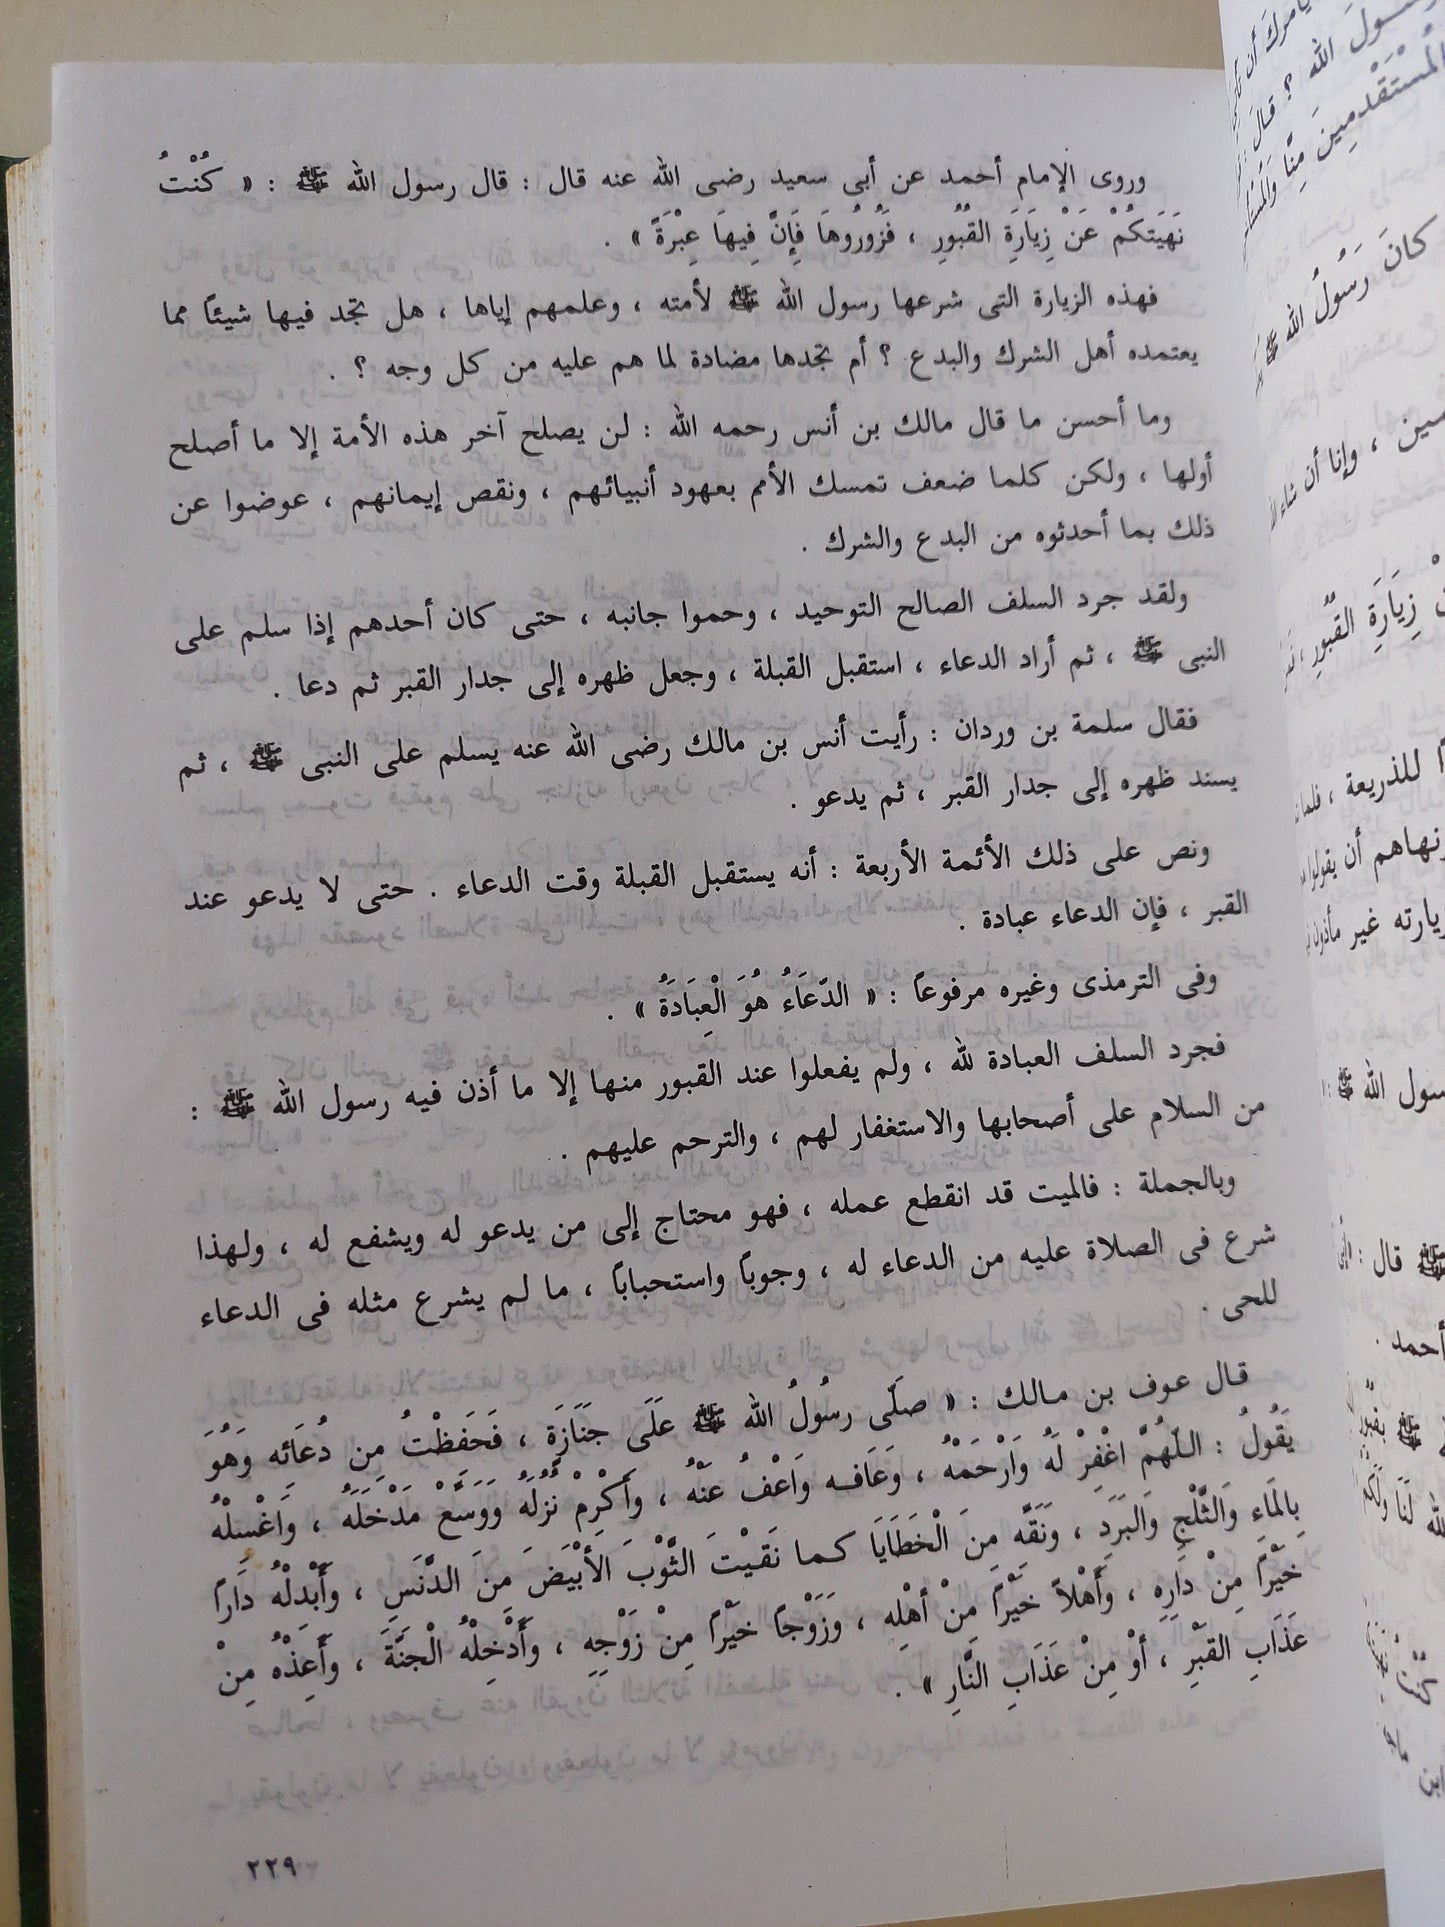 وروى الإمام أحمد عن أبى سعيد رضى الله عنه قال : قال رسول الله ﷺ : « كُنْتُ
نَهَيَتكُمْ عَنْ زِيَارَةِ القُبُورِ ، فَزُورُوهَا فَإِنَّ فِيهَا عِبْرَةً » .
فهذه الزيارة التى شرعها رسول الله ﷺ لأمته ، وعلمهم إياها ، هل تجد فيها شيئاً مما
يعتمده أهل الشرك والبدع ؟ أم تجدها مضادة لما هم عليه من كل وجه ؟ .
وما أحسن ما قال مالك بن أنس رحمه الله : لن يصلح آخر هذه الأمة إلا ما أصلح
أولها ، ولكن كلما ضعف تمسك الأمم بعهود أنبيائهم ، ونقص إيمانهم ، عوضوا عن
ذلك بما أحدثوه من البدع والشرك .
ولقد جرد السلف الصالح التوحيد ، وحموا جانبه ، حتى كان أحدهم إذا سلم على
النبى ﷺ ، ثم أراد الدعاء ، استقبل القبلة ، وجعل ظهره إلى جدار القبر ثم دعا .
فقال سلمة بن وردان : رأيت أنس بن مالك رضى الله عنه يسلم على النبى ﷺ ، ثم
يسند ظهره إلى جدار القبر ، ثم يدعو .
ونص على ذلك الأئمة الأربعة : أنه يستقبل القبلة وقت الدعاء . حتى لا يدعو عند
القبر ، فإن الدعاء عبادة .
وفى الترمذى وغيره مرفوعاً : « الدّعَاءُ هُوَ الْعِبَادَةُ » .
فجرد السلف العبادة لله ، ولم يفعلوا عند القبور منها إلا ما أذن فيه رسول الله ﷺ :
من السلام على أصحابها والاستغفار لهم ، والترحم عليهم .
وبالجملة : فالميت قد انقطع عمله ، فهو محتاج إلى من يدعو له ويشفع له ، ولهذا
شرع فى الصلاة عليه من الدعاء له ، وجوباً واستحباباً ، ما لم يشرع مثله فى الدعاء
للحى .
قال عوف بن مالك : « صَلّى رسُولُ الله ﷺ عَلَى جَنَازَةٍ ، فَحَفِظْتُ مِن دُعَائِه وَهُوَ
يَقُولُ : اللّهُمَّ اغْفِرْ لَهُ وَارْحَمْهُ ، وَعَافه وَاعْفُ عَنْهُ ، وأَكْرِمْ نُزُلَهُ وَوَسَّعْ مَدْخَلَهُ ، وَاغْسلْهُ
بِالمَاءِ وَالثَّلْجِ وَالبَرَدِ ، وَنَقَّه مِنَ الْخَطَايَا كما نَقيْتَ الثَّوْبَ الأبْيَضَ مِنَ الدَّنَسِ ، وأَبْدلْهُ دَاراً
خَيْراً مِنْ دَارِهِ ، وَأَهْلاً خَيْراً مِنْ أهْلِه ، وَزَوْجاً خيْراً مِنْ زَوْجِهِ ، وأَدْخِلْهُ الْجَنَّةَ ، وأَعِذْهُ مِنْ
عَذَابِ القَبْرِ ، أوْ مِنْ عَذَابِ النَّارِ » .
٢٢٩
رسول الله ؟ قال
الْمُسْتَقْدمِينَ مِنَّا
كانَ رَسُولُ الله ﷺ
، وإنا أن شاء
زِيَارَةِ القُبُورِ
للذريعة ، فلما
أن يقولوا
زيارته غير مأذون
رسول الله ﷺ :
ﷺ قال :
أحمد .
الله لَنَا
ابن